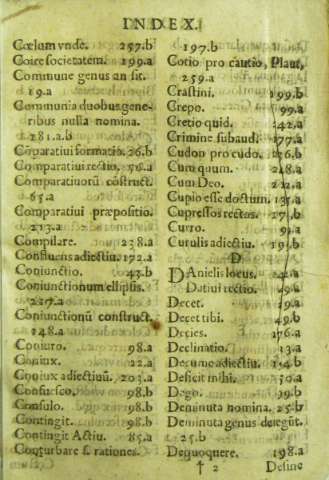 INDEX.
Cœlum vnde. 257.b
Coire societatem. 199.a
Commune genus an sit.
19.a
Communia duobus gene-
ribus nulla nomina.
281.a.b
Cōparatiui formatio. 26.b
Comparatiui rectio. 56.a
Comparatiuorū cōstruct.
65.a
Comparatiui præpositio.
213.a
Compilare. 238.a
Confluens adiectiu. 172.a
Coniunctio. 43.b
Coniunctionum ellipsis.
217.a
Coniunctionū construct.
148.a
Coniuro. 98.a
Coniux. 22.a
Coniux adiectiuū. 203.a
Consuesco. 98.b
Consulo. 98.b
Contingit. 98.b
Contingit Actiu. 85.a
Conturbare &. rationes.
197.b
Cotio pro cautio, Plaut.
259.a
Crastini. 199.b
Crepo. 99.a
Cretio quid. 242.a
Crimine subaud. 177.a
Cudon pro cudo. 276.b
Cum quum. 248.a
Cum Deo. 212.a
Cupio esse doctum. 131.a
Cupressos rectos. 271.b
Curro. 91.a
Curulis adiectiu. 191.b
D
DAnielis locus. 242.a
Datiui rectio. 49.a
Decet. 19.a
Decet tibi. 49.b
Decies. 176.a
Declinatio. 13.a
Decume adiectiu. 154.b
Deficit mihi. 50.a
Dego. 39.b
Deminuta nomina. 25.b
Deminuta genus delegūt.
25.b
Dequoquere. 198.a
† 2 Desine